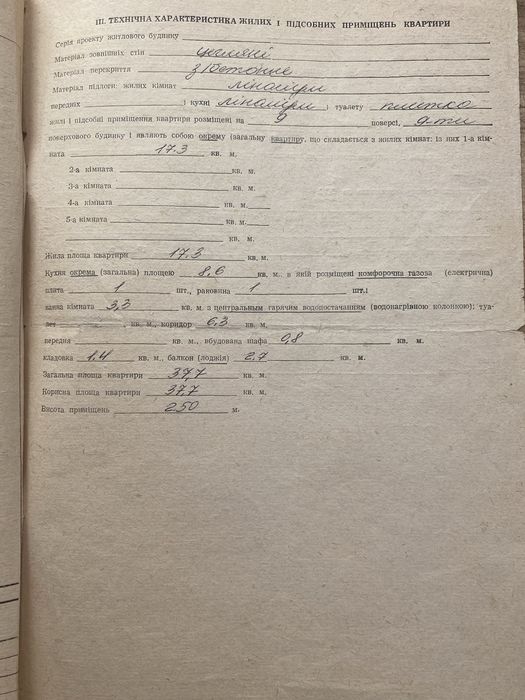 III. ТЕХНІЧНА ХАРАКТЕРИСТИКА ЖИЛИХ І ПІДСОБНИХ ПРИМІЩЕНЬ КВАРТИРИ
Серія проекту житлового будинку
Матеріал зовнішніх стін цегляні
Матеріал перекриття з/бетонне
Матеріал підлоги: жилих кімнат лінолiум
передніх і кухні лінолiум і туалету плитка
жилі і підсобні приміщення квартири розміщені на 9 поверсі, 9-ти
поверхового будинку і являють собою окрему (загальну квартиру, що складається з жилих кімнат: із них 1-а кім-
ната 17.3 кв. м.
2-а кімната кв. м.
3-а кімната кв. м.
4-а кімната кв. м.
5-а кімната кв. м.
кв. м.
Жила площа квартири 17,3 кв. м.
Кухня окрема (загальна) площею 8,6 кв. м. в якій розміщені комфорочна газова (електрична)
плита 1 шт., раковина 1 шт.;
ванна кімната 3,3 кв. м. з центральним гарячим водопостачанням (водонагрівною колонкою); туа-
лет кв. м., коридор 6,3 кв. м.
передня кв. м., вбудована шафа 0,8 кв. м.
кладовка 1.4 кв. м., балкон (лоджія) 2,7 кв. м.
Загальна площа квартири 37,7 кв. м.
Корисна площа квартири 37,7 кв. м.
Висота приміщень 250 м.